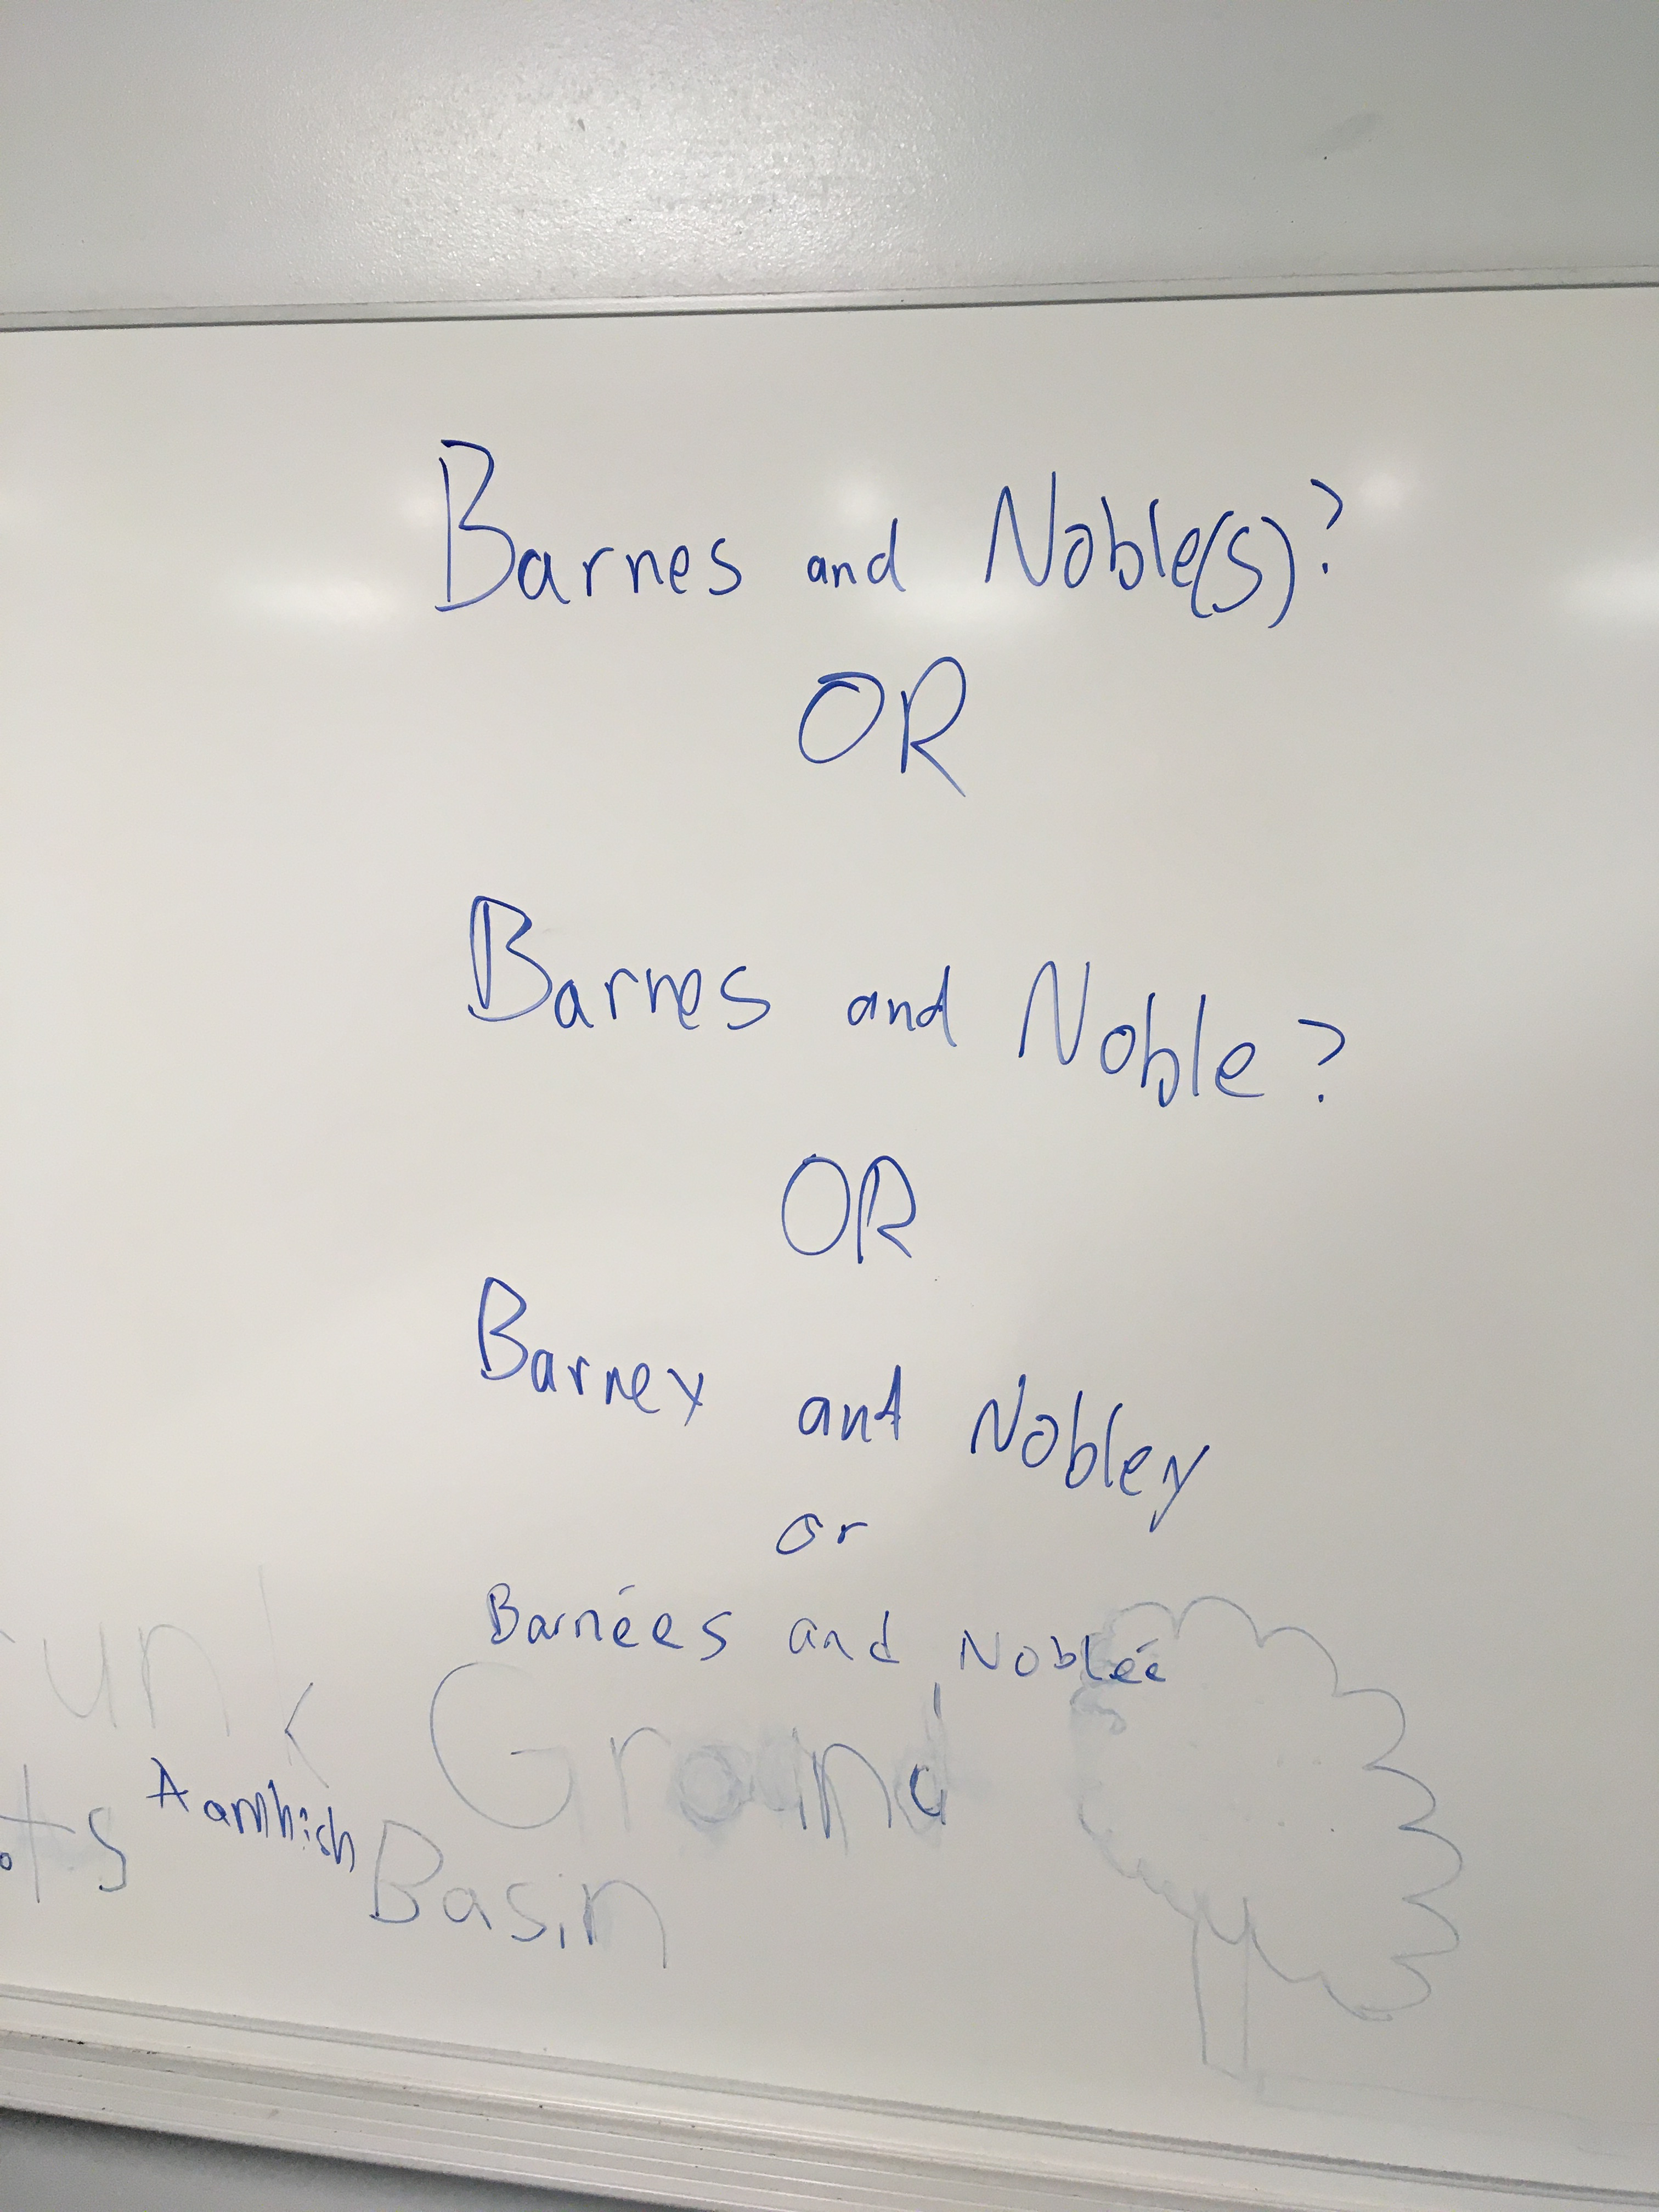 Barnes and Noble(s)?
OR
Barnes and Noble?
OR
Barney and Nobley
or
Barnées and Noblée
unk Ground
ots Aamhish Basin